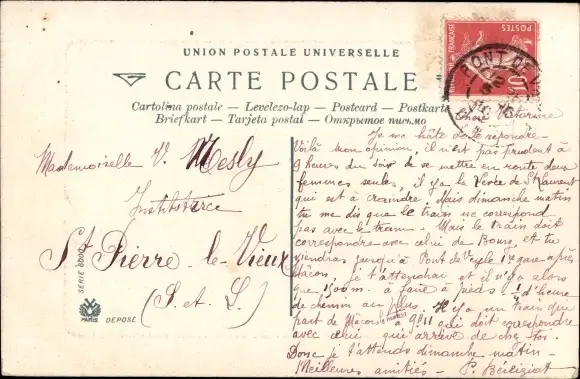 UNION POSTALE UNIVERSELLE
CARTE POSTALE
Cartolina postale — Levelezo-lap — Postcard — Postkarte
Briefkart — Tarjeta postal — Открытое письмо
POSTES
PONT DE
Mademoiselle V. Mesly
Institutrice
St Pierre-le-Vieux
(S. et L.)
SERIE 600
PARIS
DEPOSÉ
Chère Victorine
Je me hâte de te répondre-
Voilà mon opinion, il n'est pas prudent à
9 heures du soir de se mettre en route deux
femmes seules, il y a la Levée de St Laurent
qui est à craindre. Mais dimanche matin
tu me dis que le train ne correspond
pas avec le tram. Mais le train doit
correspondre avec celui de Bourg, et tu
viendras jusqu'à Pont de Veyle 1e gare après
Mâcon, je t'attendrai et il n'y a alors
que 1500m. à faire à pieds - d'heure
de chemin au plus. Il y a un train qui
part de Mâcon à 9h11 matin qui doit correspondre
avec celui qui arrive de chez toi.
Donc je t'attends dimanche matin -
Meilleures amitiés - P. Béréziat